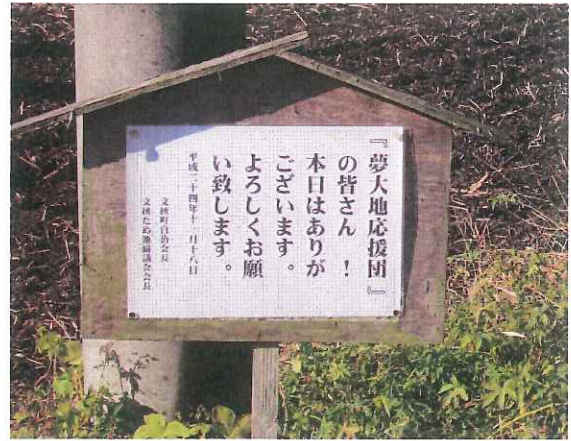 『夢大地応援団』
の皆さん ！
本日はありが
ございます。
よろしくお願
い致します。
平成二十四年十一月十八日
文挾町自治会長
文挾ため池協議会会長